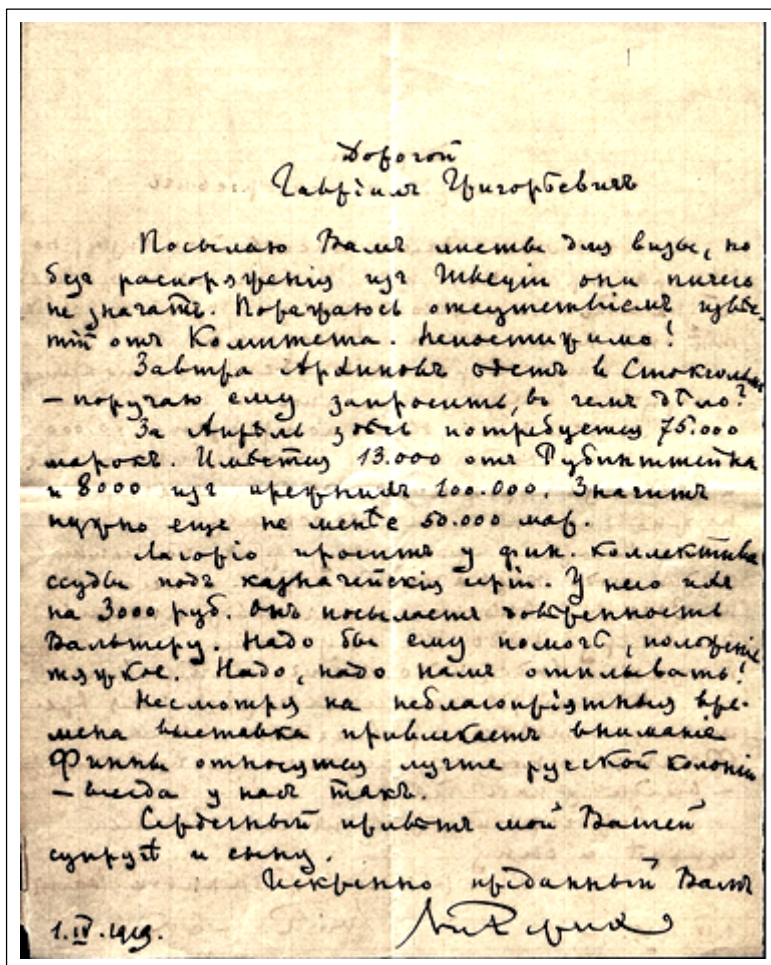 Дорогой
Гавріилъ Григорьевичъ
Посылаю Вамъ листы для визы, но
безъ распоряженія изъ Швеціи они ничего
не значатъ. Поражаюсь отсутствіемъ извѣс-
тій отъ Комитета. Непостижимо!
Завтра Арбиновъ ѣдетъ в Стокгольмъ
– поручаю ему запросить, въ чемъ дѣло?
За Апрѣль здѣсь потребуется 75.000
марокъ. Имѣется 13.000 отъ Рубинштейна
и 8000 изъ прежнихъ 100.000. Значитъ
нужно еще не менѣе 50.000 мар.
Лагоріо проситъ у фин. коллектива
ссуды подъ казначейскія серіи. У него ихъ
на 3000 руб. Онъ посылаетъ довѣренность
Вальтеру. Надо бы ему помочь, положеніе
тяжкое. Надо, надо намъ отплывать!
Несмотря на неблагопріятныя вре-
мена выставка привлекаетъ вниманіе
Финны относятся лучше русской колоніи
– всегда у насъ такъ.
Сердечный привѣтъ мой Вашей
супругѣ и сыну.
Искренно преданный Вамъ
1.IV.1919.